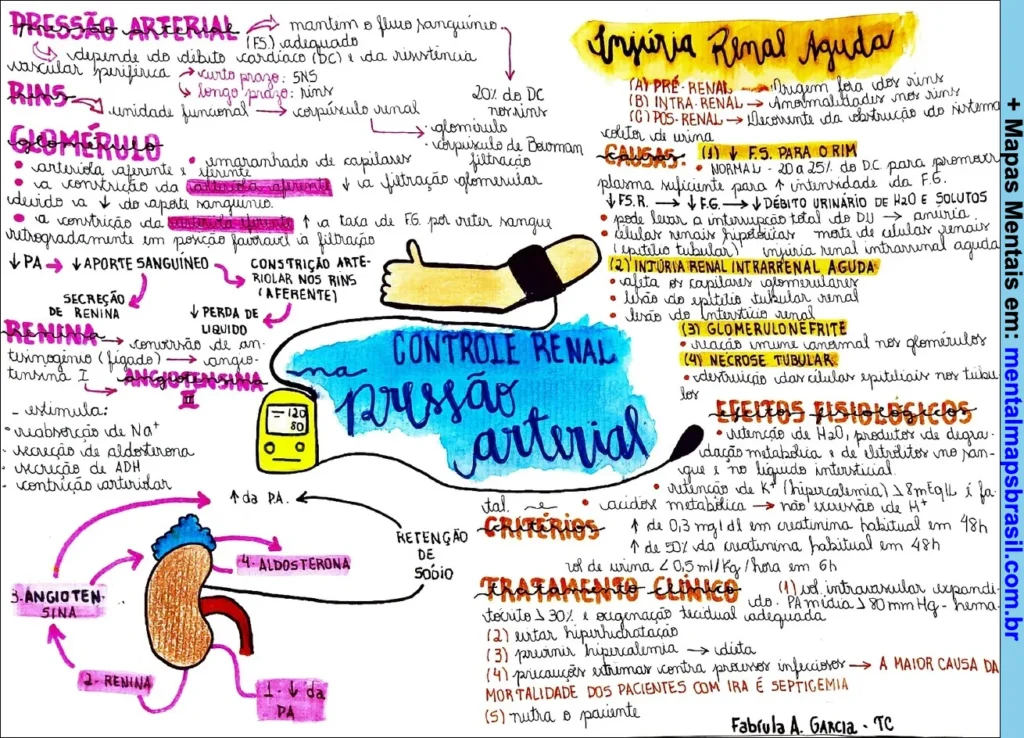 PRESSÃO ARTERIAL → mantem o fluxo sanguíneo
(FS.) adequado
depende do débito cardíaco (DC) e da resistência
vascular periférica → curto prazo: SNS
→ longo prazo: rins
RINS → unidade funcional → corpúsculo renal
20% do DC
nos rins
· glomérulo
· corpúsculo de Bowman
filtração
GLOMÉRULO
• arteríola aferente e eferente
• emaranhado de capilares
• a constrição da arteríola aferente ↓ a filtração glomerular
devido a ↓ do aporte sanguíneo.
• a constrição da arteríola eferente ↑ a taxa de FG por reter sangue
retrogradamente em posção favorável à filtração
↓ PA → ↓ APORTE SANGUÍNEO
CONSTRIÇÃO ARTE-
RIOLAR NOS RINS
(AFERENTE)
SECREÇÃO
DE RENINA
↓ PERDA DE
LIQUIDO
RENINA → conversão de an-
tensinogênio (fígado) → angio-
tensina I
ANGIOTENSINA
II
- estimula:
• reabsorção de Na⁺
• secreção de aldosterona
• secreção de ADH
- contrição arteriolar
↑ da PA.
RETENÇÃO
DE
SÓDIO
4. ALDOSTERONA
3. ANGIOTEN-
SINA
2. RENINA
1. ↓ da
PA
120
80
CONTROLE RENAL
na
pressão
arterial
Injúria Renal Aguda
(A) PRÉ-RENAL → Origem fora dos rins
(B) INTRA-RENAL → Anormalidades nos rins
(C) PÓS-RENAL → Decorrente da obstrução do sistema
coletor de urina
CAUSAS (1) ↓ F.S. PARA O RIM
• NORMAL - 20 a 25% do D.C para promover
plasma suficiente para ↑ intensidade da F.G.
↓ FS.R → ↓ F.G → ↓ DÉBITO URINÁRIO DE H2O E SOLUTOS
• pode levar a interrupção total do DU → anúria.
• células renais hipóxicas morte de células renais
(epitélio tubular) injúria renal intrarrenal aguda
(2) INJÚRIA RENAL INTRARRENAL AGUDA
• afeta os capilares glomerulares
• lesão do epitélio tubular renal
• lesão do Interstício renal
(3) GLOMERULONEFRITE
• reação imune anormal nos glomérulos
(4) NECROSE TUBULAR
• destruição das células epiteliais nos túbu
los
EFEITOS FISIOLÓGICOS
• retenção de H2O, produtos de degra-
dação metabólica e de eletrólitos no san-
gue e no líquido intersticial.
• retenção de K⁺ (hipercalemia) > 8mEq/L é fa
tal.
• acidose metabólica → não excressão de H⁺
CRITÉRIOS
↑ de 0,3 mg/dl em creatinina habitual em 48h
↑ de 50% da creatinina habitual em 48h
vol de urina < 0,5 ml/Kg/hora em 6h
TRATAMENTO CLÍNICO (1) vol. intravascular expandi-
do. PA média > 80 mm Hg - hema-
tócrito > 30% e oxigenação tecidual adequada
(2) evitar hiperhidratação
(3) prevenir hipercalemia → dieta
(4) precauções extremas contra processos infeciosos → A MAIOR CAUSA DA
MORTALIDADE DOS PACIENTES COM IRA É SEPTIGEMIA
(5) nutra o paciente
Fabíula A. GARCIA - TC
+ Mapas Mentais em: mentalmapsbrasil.com.br